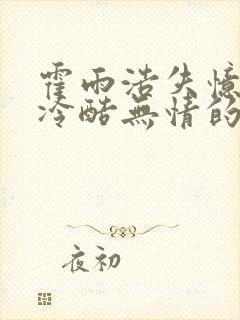 霍雨浩失憶
冷酷無情的
夜初